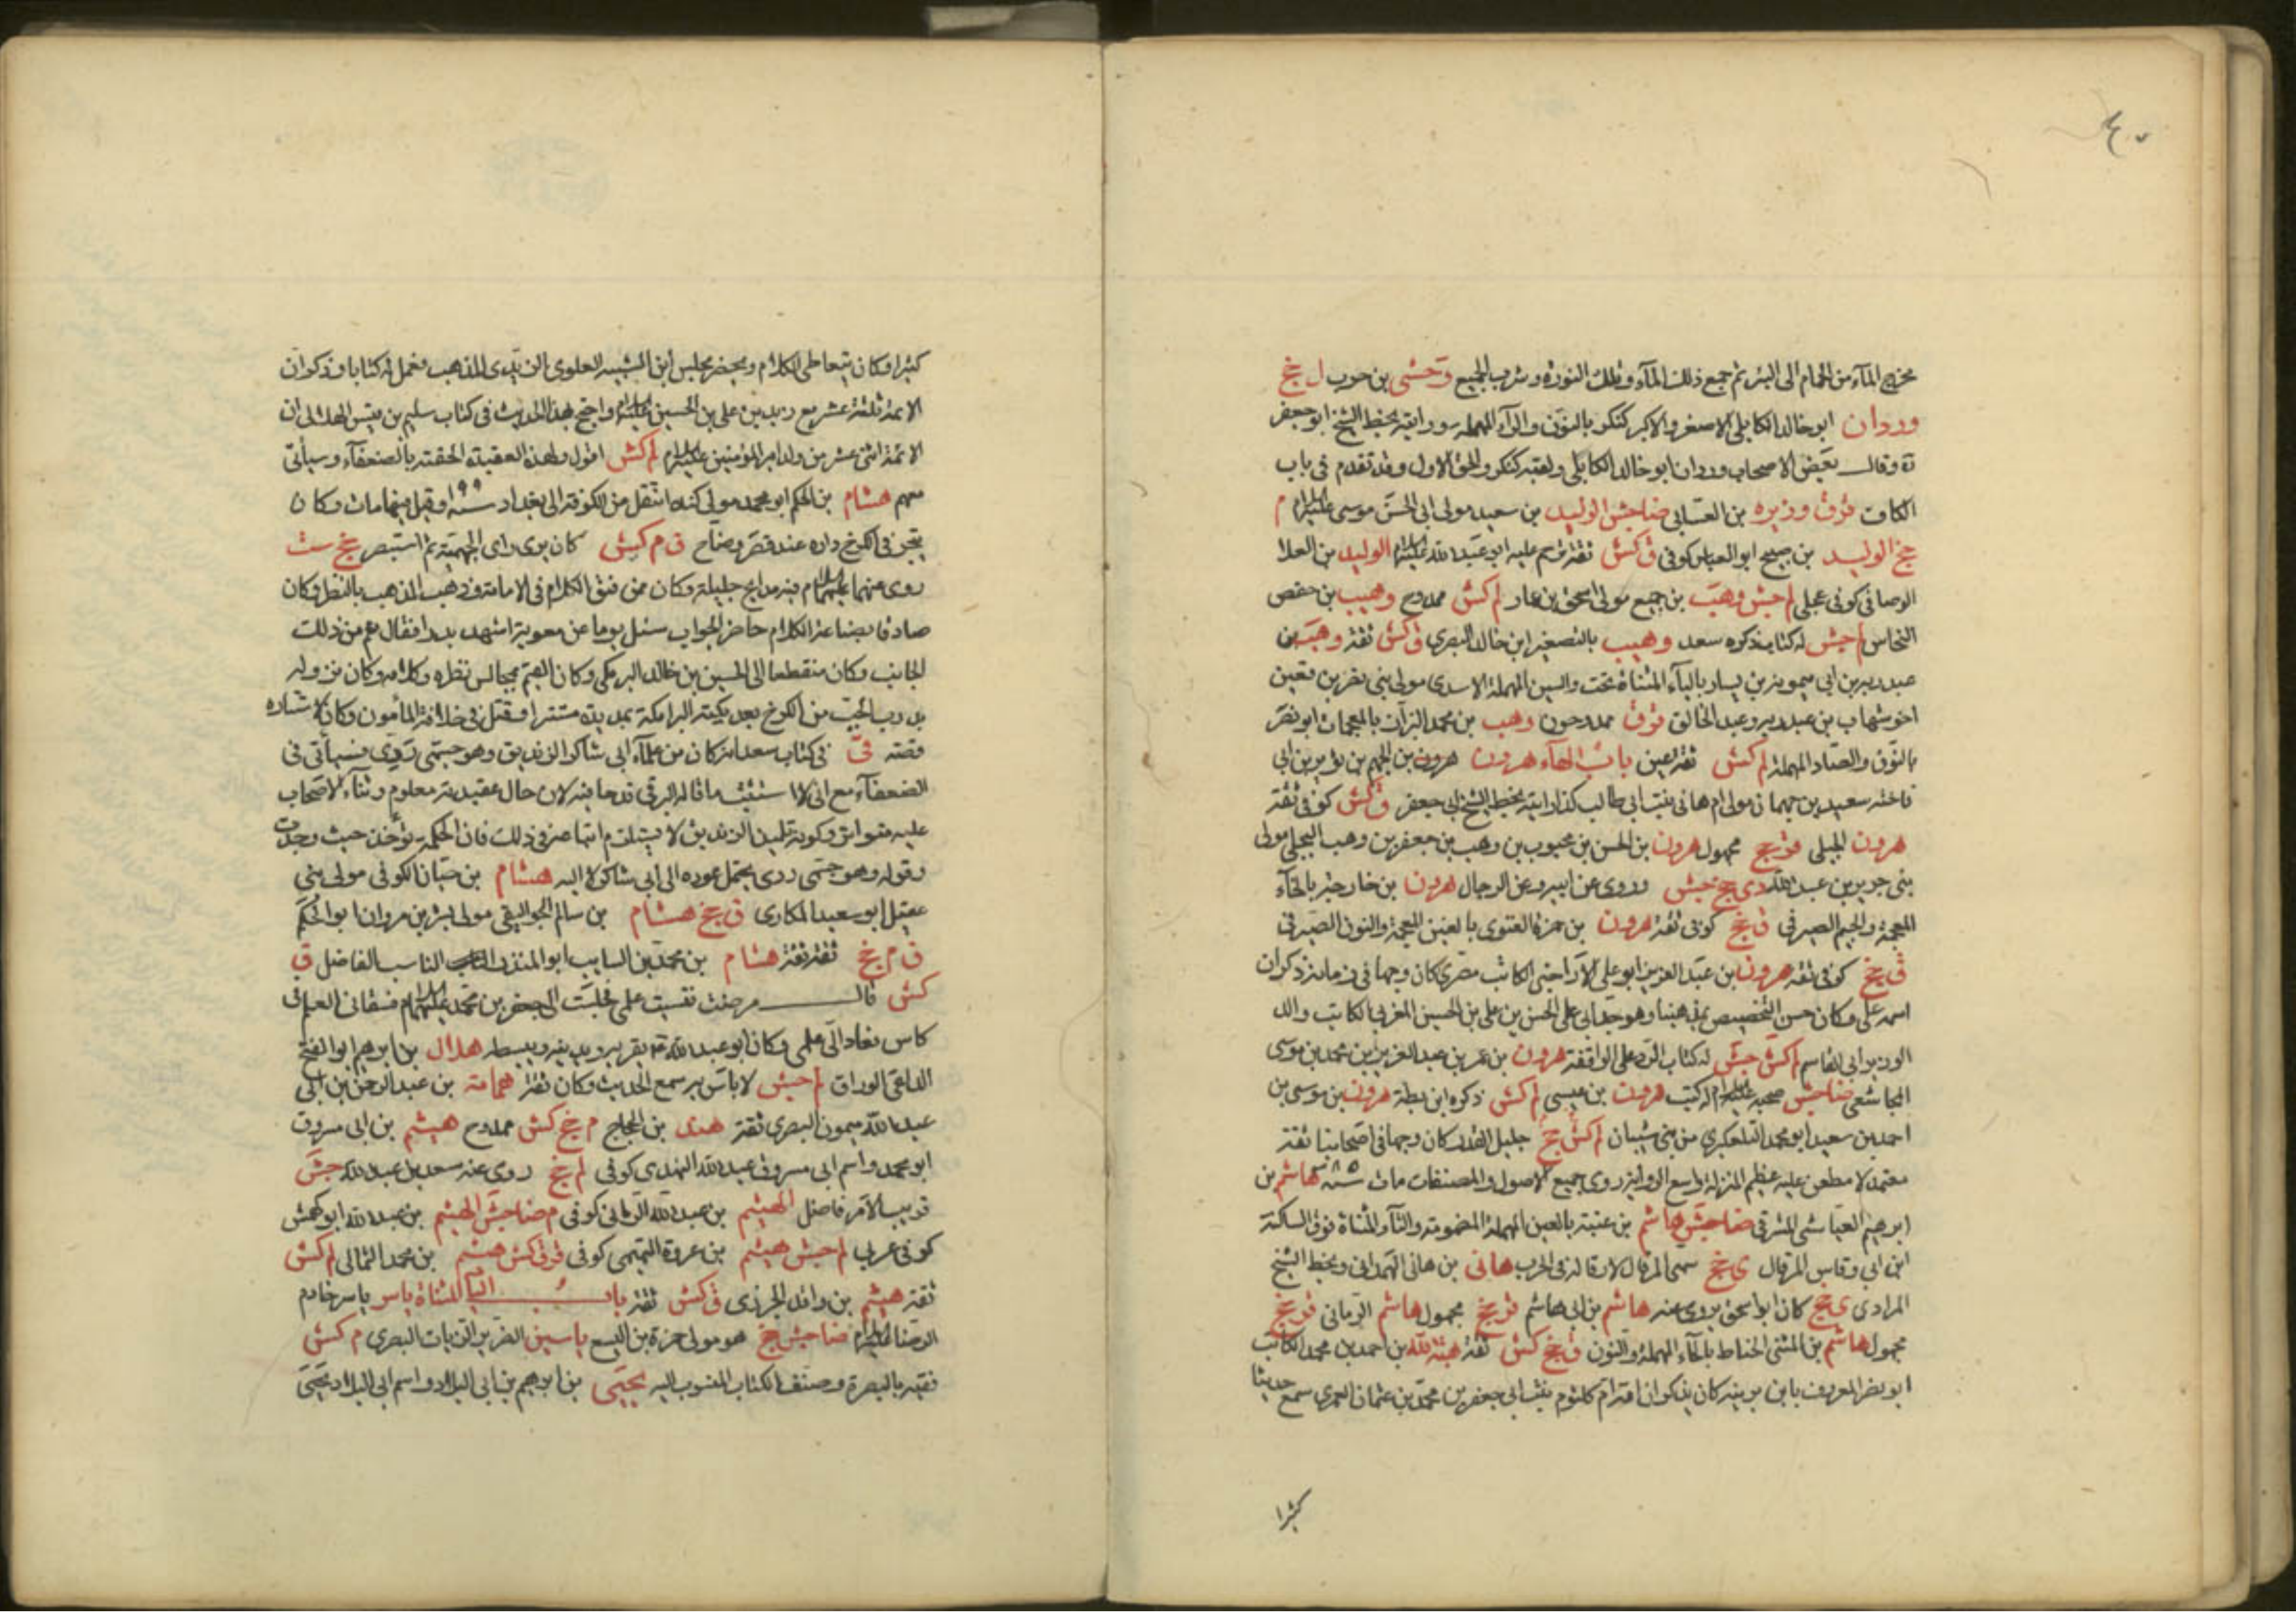 ٤٠٧
مخرج الماء من الحمام الى البئر ثم جمع ذلك المآء وتلك النورة وشرب الجميع وحشى بن حرب ل جخ
وردان ابو خالد الكابلى الاصغر والاكبر كنكر بالنون والرآء المهمله ورايته بخط الشيخ ابو جعفر
ره وقال بعض الاصحاب وردان ابو خالد الكابلى ولقبه كنكر والحق الاول وقد تقدم فى باب
الكاف الوليد بن سعيد مولى ابى الحسن موسى عليه السلام م
جخ الوليد بن صبيح ابو العباس كوفى ق كش ثقة ابو عبد الله الوليد بن العلا
الوصافى كوفى عجلى لم جش وهب بن جميع مولى اسحق بن عمار لم كش ممدوح وهيب بن حفص
النحاس لم جش له كتاب ذكره سعد وهيب بالتصغير ابن خالد البصرى ق كش ثقة وهب بن
عبد ربه بن ابى ميمونة بن يسار باليآء المثناة تحت والسين المهملة الاسدى مولى بنى نصر بن قعين
اخو شهاب بن عبد ربه وعبد الخالق ممدوحون وهب بن محمد البزاز بالمعجمات ابو نصر
بالنون والصاد المهملة لم كش ثقة عين باب الهآء هرون هرون بن الجهم بن ثوير بن ابى
فاخته سعيد بن جهمان مولى ام هانى بنت ابى طالب كذا رايته بخط الشيخ ابى جعفر ق كش كوفى ثقة
هرون الجبلى مجهول هرون بن الحسن بن محبوب بن وهب بن جعفر بن وهب البجلى مولى
بنى جرير بن عبد الله دى جخ جش وروى عن ابيه وعن الرجال هرون بن خارجة بالخآء
المعجمة والجيم الصيرفى ق جخ كوفى ثقة هرون بن حمزة الغنوى بالغين المعجمة والنون الصيرفى
ق جخ كوفى ثقة هرون بن عبد العزيز ابو على الاراجنى الكاتب مصرى كان وجها فى زمانه ذكر ان
اسمه على وكان حسن التخصيص بمذهبنا وهو جد ابى على الحسن بن على بن الحسين المغربى الكاتب والد
الوزير ابى القاسم لم كش جش له كتاب الرد على الواقفة هرون بن عمر بن عبد العزيز بن محمد بن موسى
المجاشعى ضا جش صحبه عليه السلام له كتب هرون بن عيسى لم كش ذكره ابن بطة هرون بن موسى بن
احمد بن سعيد ابو محمد التلعكبرى من بنى شيبان لم كش جخ جليل القدر كان وجها فى اصحابنا ثقة
معتمد لا مطعن عليه عظيم المنزلة واسع الرواية روى جميع الاصول والمصنفات مات سنة ٣٨٥ هاشم بن
ابرهيم العباسى المشرقى ضا جش هاشم بن عتبة بالعين المهملة المضمومة والتآء المثناة فوق الساكنة
ابن ابى وقاص المرقال ى جخ سمى المرقال لارقاله فى الحرب هانى بن هانى الهمدانى وبخط الشيخ
المرادى ى جخ كان ابو اسحق يروى عنه هاشم بن ابى هاشم قر جخ مجهول هاشم الرمانى قر جخ
مجهول هاشم بن المثنى الحناط بالحآء المهملة والنون ق جخ كش ثقة هبة الله بن احمد بن محمد الكاتب
ابو نصر المعروف بابن برينه كان يذكر ان امه ام كلثوم بنت ابى جعفر بن محمد بن عثمان العمرى سمع حديثا
كثيرا
كثيرا وكان يتعاطى الكلام ويحضر مجلس ابن الشبيه العلوى الزيدى المذهب فعمل له كتابا وذكر ان
الائمة ثلثة عشر مع زيد بن على بن الحسين عليه السلام واحتج بهذا الحديث فى كتاب سليم بن قيس الهلالى ان
الائمة اثنى عشر من ولد امير المؤمنين عليه السلام لم كش اقول ولهذه العقيدة الحقته بالضعفآء وسياتى
معهم هشام بن الحكم ابو محمد مولى كنده انتقل من الكوفة الى بغداد سنة ١٩٩ وقيل فيها مات وكان
يتجر فى الكرخ داره عند قصر وضاح ق م كش كان يرى راى الجهمية ثم استبصر جخ ست
روى عنهما عليهما السلام فيه مدايح جليلة وكان ممن فتق الكلام فى الامامة وذهب المذهب بالنظر وكان
صادقا بصناعة الكلام حاضر الجواب سئل يوما عن معوية اشهد بدرا فقال نعم من ذلك
الجانب وكان منقطعا الى الحسين بن خالد البرمكى وكان القيم بمجالس نظره وكلامه وكان منزوله
بدرب الجب من الكرخ بعد نكبة البرامكة بمديدة مستترا وقيل فى خلافة المأمون وكان لاستتاره
قصة قى فى كتاب سعد انه كان من غلمآء ابى شاكر الزنديق وهو جسمى ردى فسيأتى فى
الضعفآء مع انى لا استثبت ما قاله البرقى قدحا فيه لان حال عقيدته معلوم وثنآء الاصحاب
عليه متواتر وكونه تلميذ الزنديق لا يستلزم اتباعه فى ذلك فان الحكمة تؤخذ حيث وجدت
وقوله وهو جسمى ردى يحتمل عوده الى ابى شاكر لا اليه هشام بن حيان الكوفى مولى بنى
عقيل ابو سعيد المكارى ق جخ هشام بن سالم الجواليقى مولى بشر بن مروان ابو الحكم
ق م جخ ثقة ثقة هشام بن محمد بن السايب ابو المنذر الناسب الفاضل ق
كش قال مرضت نسيت علمى فجلست الى جعفر بن محمد عليهما السلام فسقانى العلم فى
كاس فعاد الى علمى وكان ابو عبد الله يقربه ويدنيه ويبسطه هلال بن ابرهيم ابو الفتح
الوراق لم جش لا باس به سمع الحديث وكان ثقة همامة بن عبد الرحمن بن ابى
عبد الله ميمون البصرى ثقة هند بن الحجاج م جخ كش ممدوح هيثم بن ابى مسروق
ابو محمد واسم ابى مسروق عبد الله النهدى كوفى لم جخ روى عنه سعد بن عبد الله جش
قريب الامر فاضل الهيثم بن عبد الله الرمانى كوفى م ضا جش الهيثم بن عبد الله ابو كهمس
كوفى عربى لم جش هيثم بن عروة التميمى كوفى ق قى كش هيثم بن محمد الثمالى لم كش
ثقة هيثم بن واقد الجزرى ق كش ثقة باب اليآء المثناة ياسر ياسر خادم
الرضا عليه السلام ضا جش جخ هو مولى حمزة بن اليسع ياسين الضرير الزيات البصرى م كش
لقيه بالبصرة وصنف الكتاب المنسوب اليه يحيى بن ابرهيم بن ابى البلاد واسم ابى البلاد يحيى